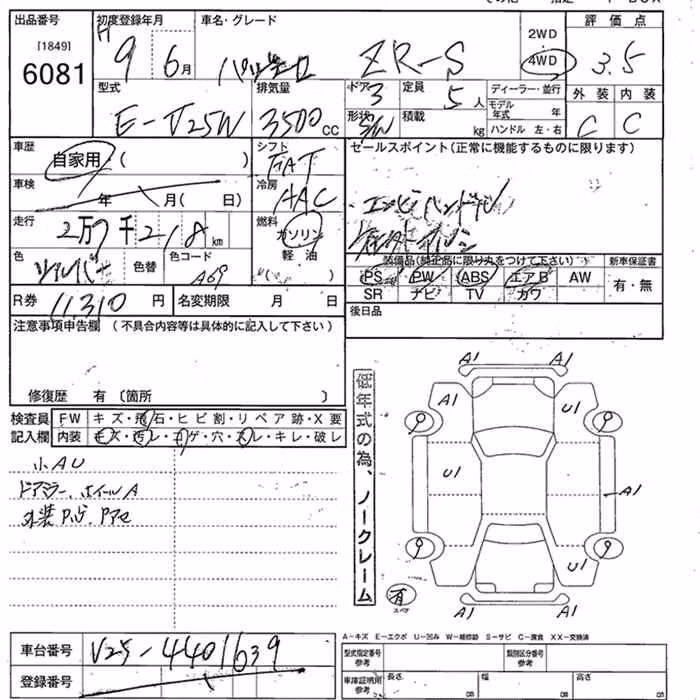 出品番号 初度登録年月 車名・グレード 2WD 評価点
[1849] H 9 6月 パジェロ ZR-S 4WD 3.5
6081
型式 排気量 ドア 3 定員 5人 ディーラー・並行 外装 内装
E-V25W 3500cc 形状 S/W 積載 kg モデル年式 年 C C
ハンドル 左・右
車歴 自家用 ( ) シフト FAT セールスポイント(正常に機能するものに限ります)
車検 年 月( 日) 冷房 AAC
走行 2万7千218km 燃料 ガソリン
軽油
色 シルバー 色替 色コード A69 ( ) 装備品(純正品に限り丸をつけて下さい) 新車保証書
PS PW ABS エアB AW 有・無
R券 11310円 名変期限 月 日 SR ナビ TV カワ
注意事項申告欄 (不具合内容等は具体的に記入して下さい) 後日品
修復歴 有 〔箇所 〕
検査員 FW キズ・飛石・ヒビ割・リペア跡・X要
記入欄 内装 キズ・汚レ・コゲ・穴・スレ・キレ・破レ
小AU
ドアミラー、ホイールA
低年式の為、ノークレーム
A1 A1
A1 U1
9 9
U1
A1
9 9
U1
有
スペア
A1 A1
A-キズ E-エクボ U-凹み W-補修跡 S-サビ C-腐食 XX-交換済
車台番号 V25-4401639 型式指定番号 参考 類別区分番号 参考
登録番号 車庫証明用 参考 長さ cm 幅 cm 高さ cm